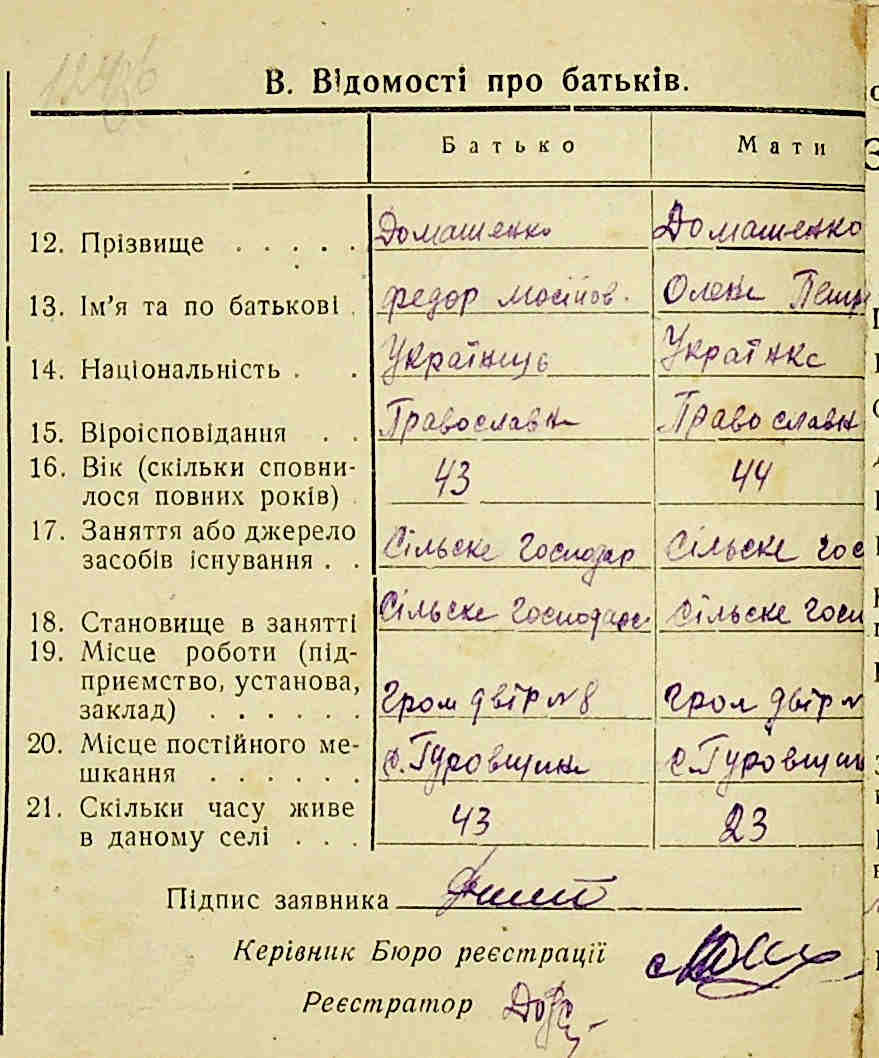 В. Відомості про батьків.
Батько Мати
12. Прізвище . . . . . Домашенко Домашенко
13. Ім'я та по батькові . Федор Мосійов. Олена
14. Національність . . Українец Українка
15. Віроісповідання . . Православн Православн
16. Вік (скільки сповни-
лося повних років) . 43 44
17. Заняття або джерело
засобів існування . . Сільске Господар Сільске гос
18. Становище в занятті Сільске Господарс Сільске Госп
19. Місце роботи (під-
приємство, установа,
заклад) . . . . . . Гром двір №8 Гром двір №
20. Місце постійного ме-
шкання . . . . . . с. Гуровщина с. Гуровщин
21. Скільки часу живе
в даному селі . . . 43 23
Підпис заявника
Керівник Бюро реєстрації
Реєстратор